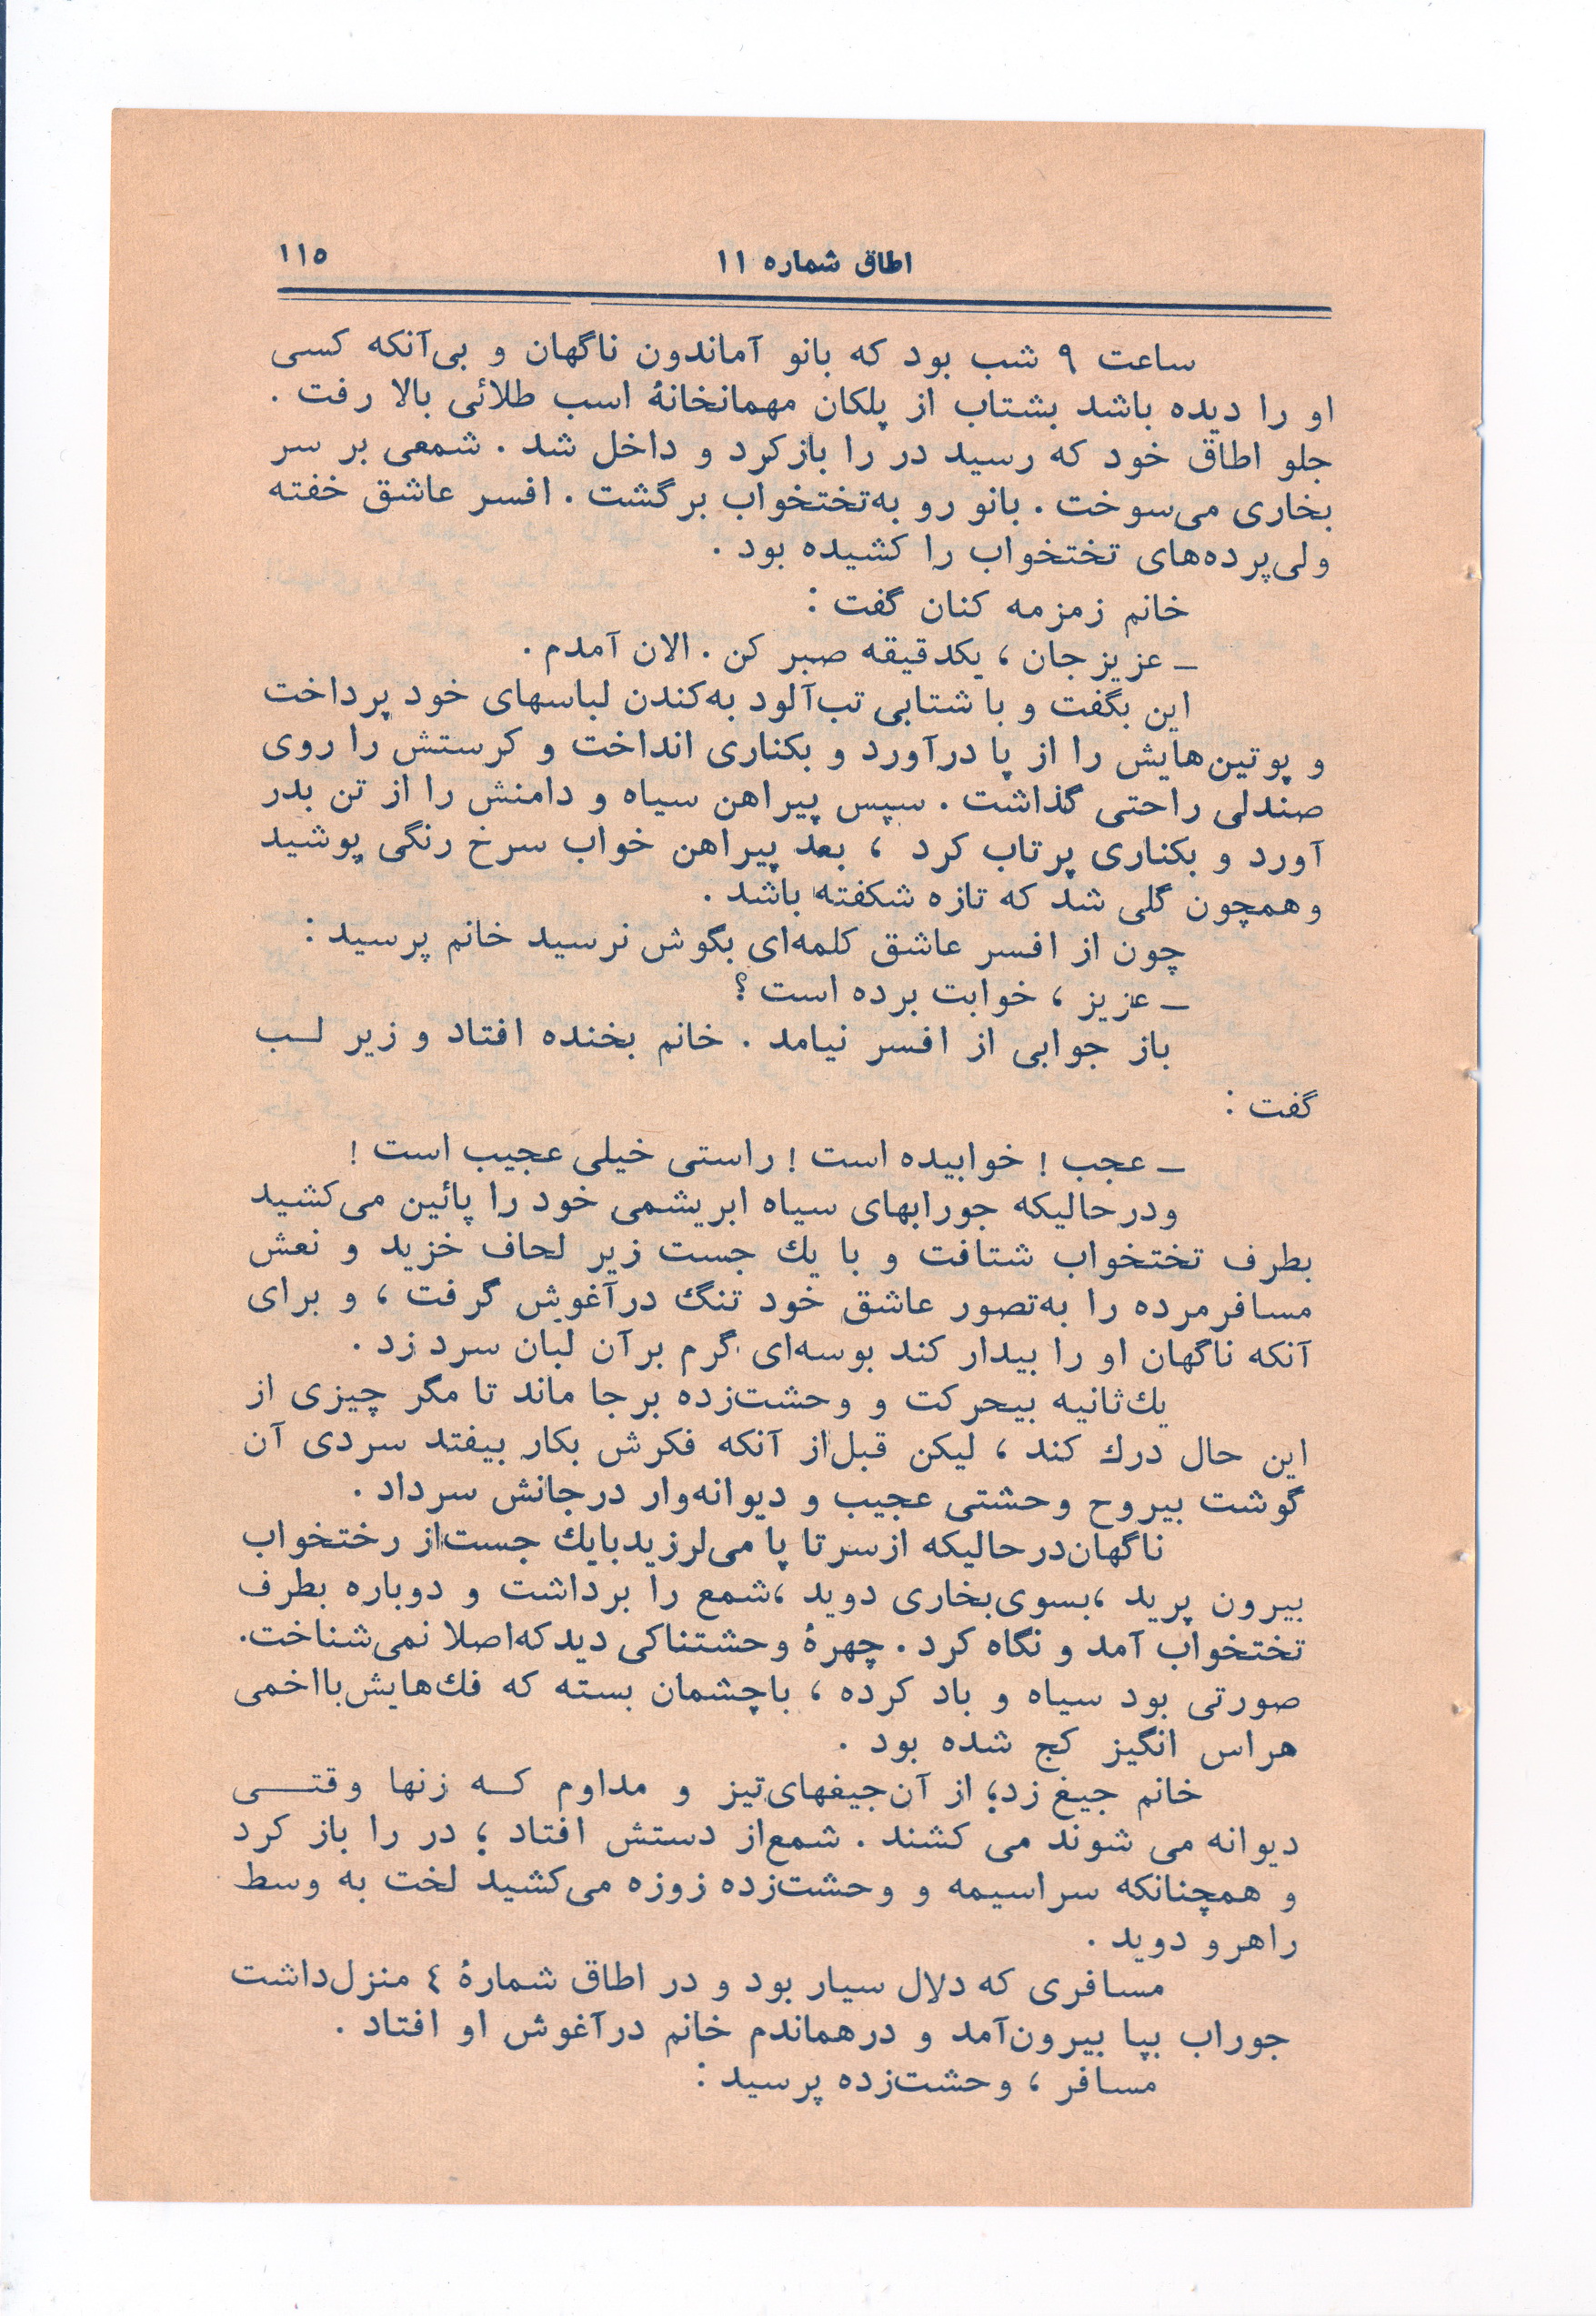 اطاق شماره ۱۱
۱۱۵
ساعت ۹ شب بود که بانو آماندون ناگهان و بی‌آنکه کسی
او را دیده باشد بشتاب از پلکان مهمانخانهٔ اسب طلائی بالا رفت .
جلو اطاق خود که رسید در را بازکرد و داخل شد . شمعی بر سر
بخاری می‌سوخت . بانو رو به‌تختخواب برگشت . افسر عاشق خفته
ولی‌پرده‌های تختخواب را کشیده بود .
خانم زمزمه کنان گفت :
ـ عزیزجان ، یکدقیقه صبر کن . الان آمدم .
این بگفت و با شتابی تب‌آلود به‌کندن لباسهای خود پرداخت
و پوتین‌هایش را از پا درآورد و بکناری انداخت و کرستش را روی
صندلی راحتی گذاشت . سپس پیراهن سیاه و دامنش را از تن بدر
آورد و بکناری پرتاب کرد ، بعد پیراهن خواب سرخ رنگی پوشید
و همچون گلی شد که تازه شکفته باشد .
چون از افسر عاشق کلمه‌ای بگوش نرسید خانم پرسید :
ـ عزیز ، خوابت برده است ؟
باز جوابی از افسر نیامد . خانم بخنده افتاد و زیر لــب
گفت :
ـ عجب ! خوابیده است ! راستی خیلی عجیب است !
ودرحالیکه جورابهای سیاه ابریشمی خود را پائین می‌کشید
بطرف تختخواب شتافت و با یك جست زیر لحاف خزید و نعش
مسافرمرده را به‌تصور عاشق خود تنگ درآغوش گرفت ، و برای
آنکه ناگهان او را بیدار کند بوسه‌ای گرم برآن لبان سرد زد .
یك‌ثانیه بیحرکت و وحشت‌زده برجا ماند تا مگر چیزی از
این حال درك کند ، لیکن قبل‌از آنکه فکرش بکار بیفتد سردی آن
گوشت بیروح وحشتی عجیب و دیوانه‌وار درجانش سرداد .
ناگهان‌درحالیکه ازسرتا پا می‌لرزیدبایك جست‌از رختخواب
بیرون پرید ،بسوی‌بخاری دوید ،شمع را برداشت و دوباره بطرف
تختخواب آمد و نگاه کرد . چهرهٔ وحشتناکی دیدکه‌اصلا نمی‌شناخت.
صورتی بود سیاه و باد کرده ، باچشمان بسته که فك‌هایش‌بااخمی
هراس انگیز کج شده بود .
خانم جیغ زد؛ از آن‌جیغهای‌تیز و مداوم کــه زنها وقتــــی
دیوانه می شوند می کشند . شمع‌از دستش افتاد ؛ در را باز کرد
و همچنانکه سراسیمه و وحشت‌زده زوزه می‌کشید لخت به وسط
راهرو دوید .
مسافری که دلال سیار بود و در اطاق شمارهٔ ٤ منزل‌داشت
جوراب بپا بیرون‌آمد و درهماندم خانم درآغوش او افتاد .
مسافر ، وحشت‌زده پرسید :